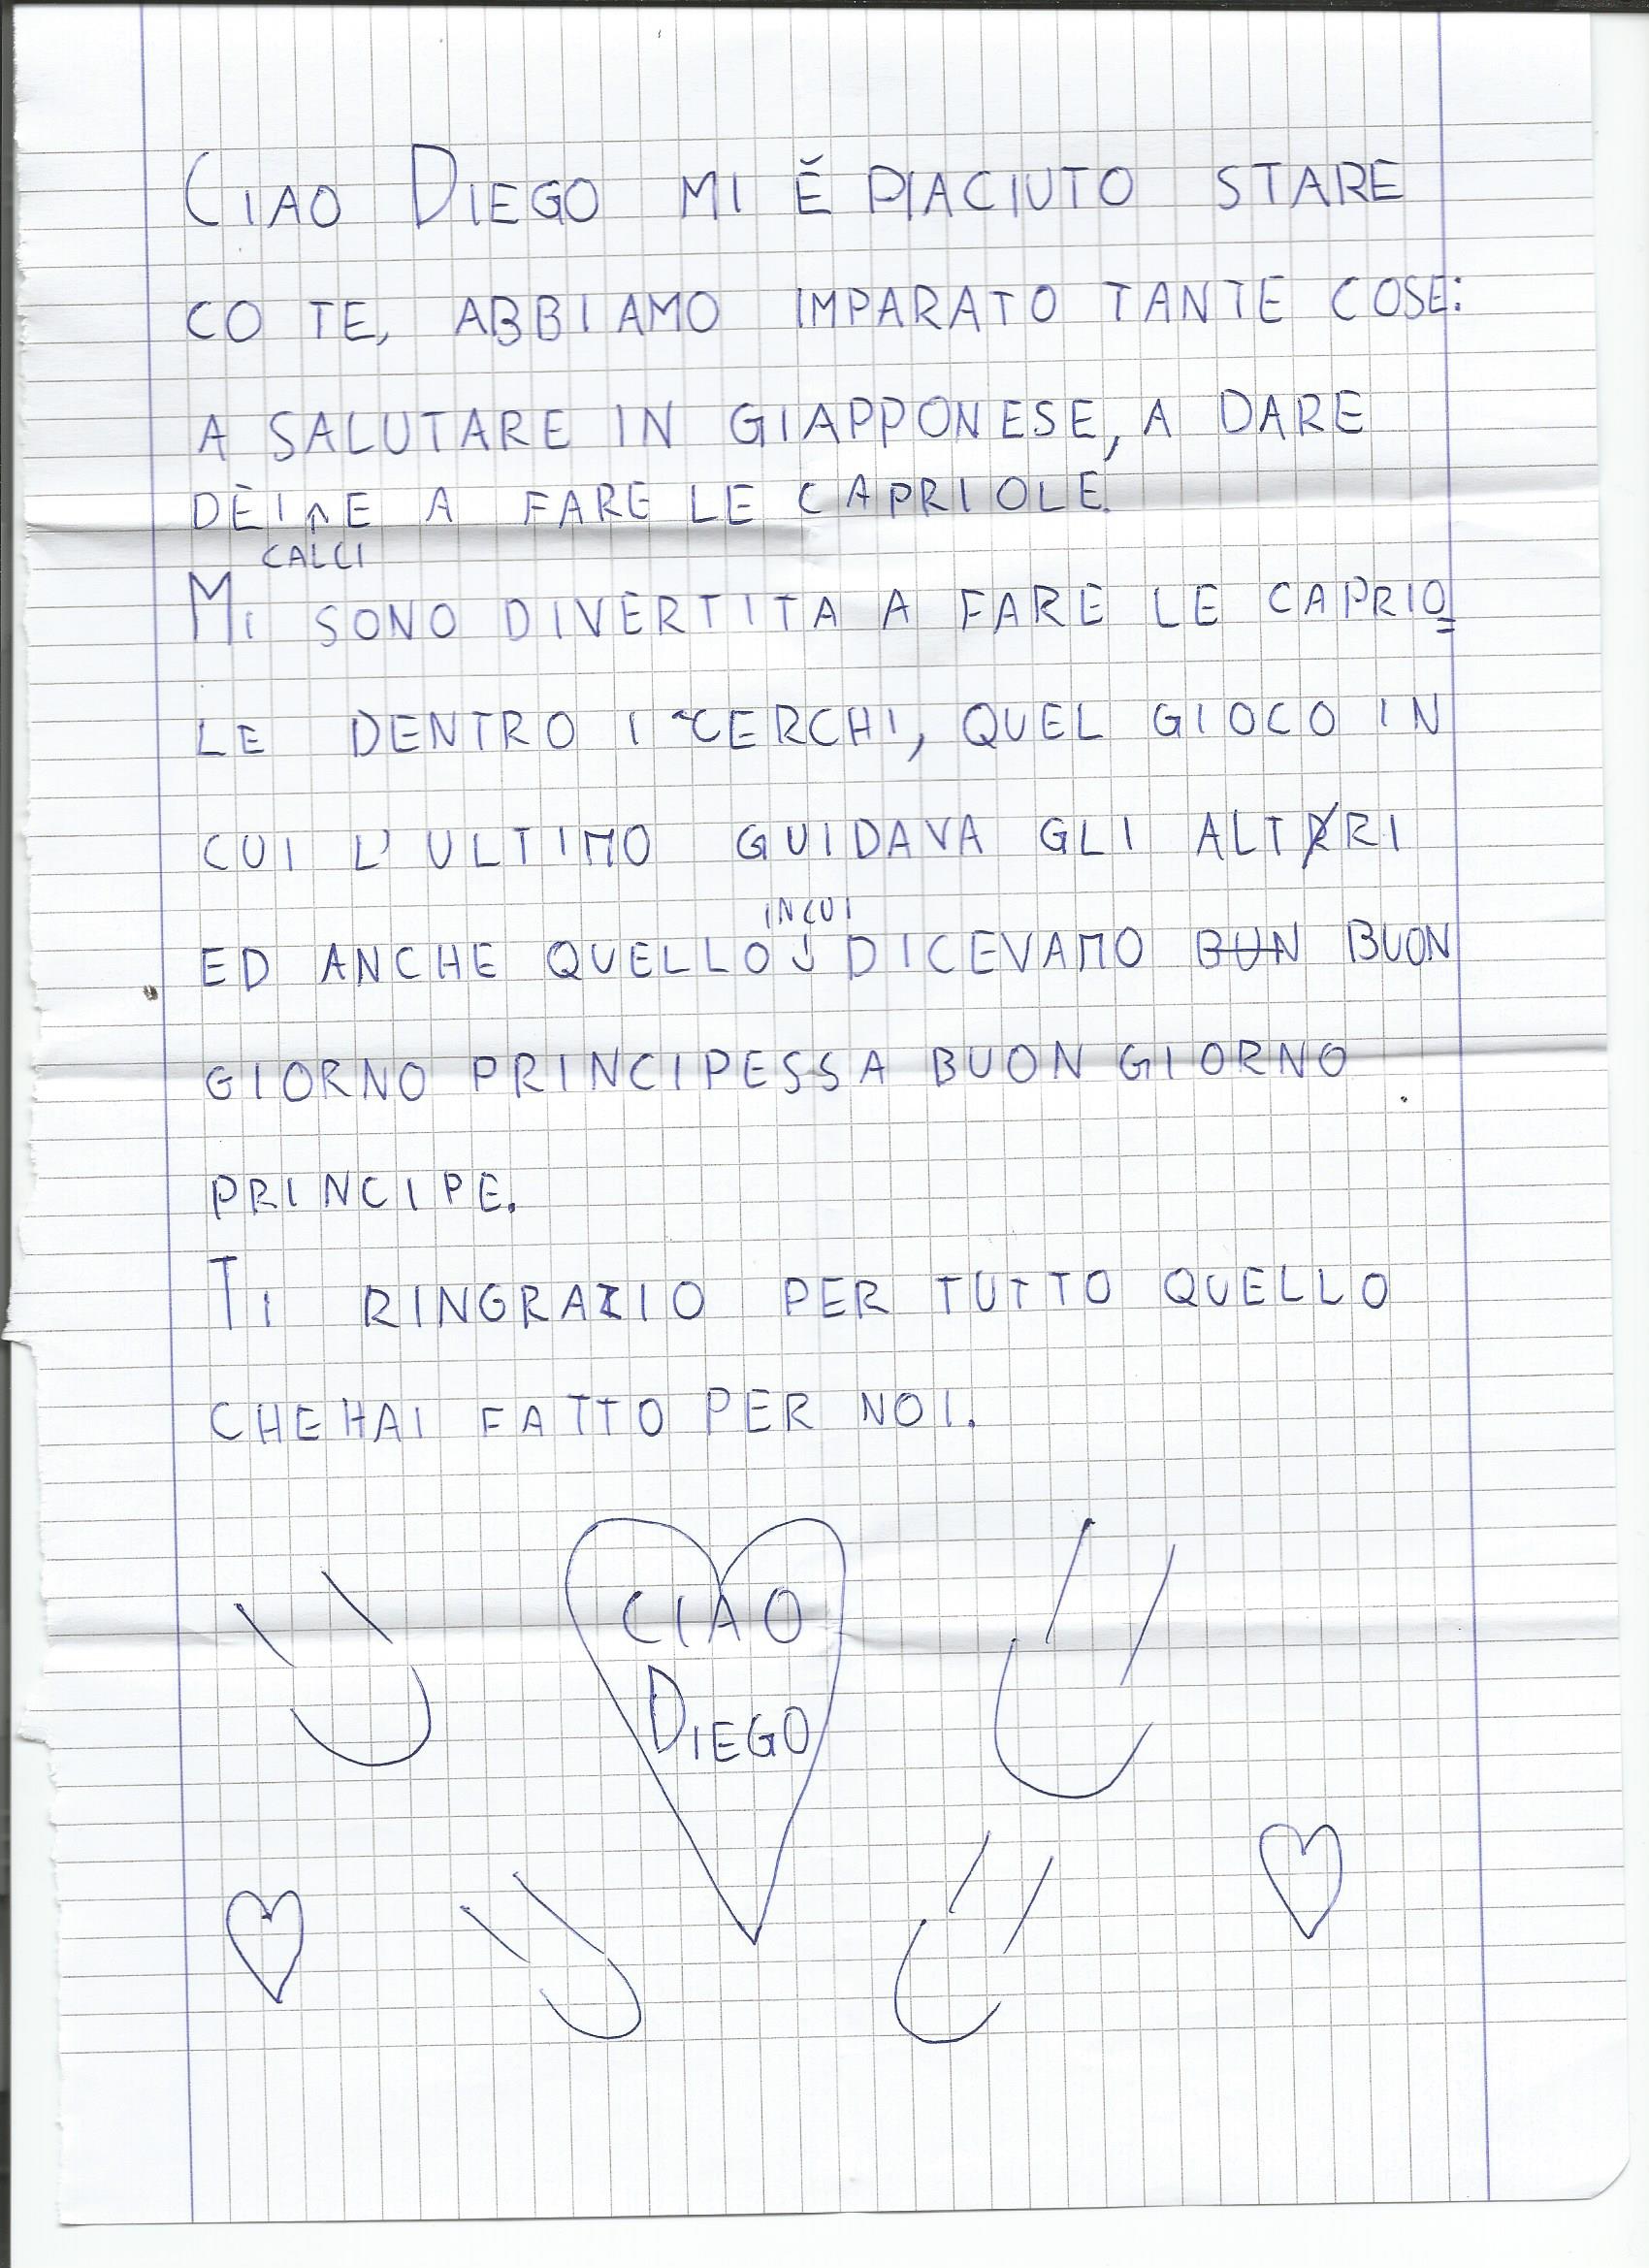 CIAO DIEGO MI È PIACIUTO STARE
CO TE, ABBIAMO IMPARATO TANTE COSE:
A SALUTARE IN GIAPPONESE, A DARE
DEI CALCI E A FARE LE CAPRIOLE.
MI SONO DIVERTITA A FARE LE CAPRIO=
LE DENTRO I CERCHI, QUEL GIOCO IN
CUI L'ULTIMO GUIDAVA GLI ALTRI
ED ANCHE QUELLO IN CUI DICEVAMO BUN BUON
GIORNO PRINCIPESSA BUON GIORNO
PRINCIPE.
TI RINGRAZIO PER TUTTO QUELLO
CHE HAI FATTO PER NOI.
CIAO
DIEGO